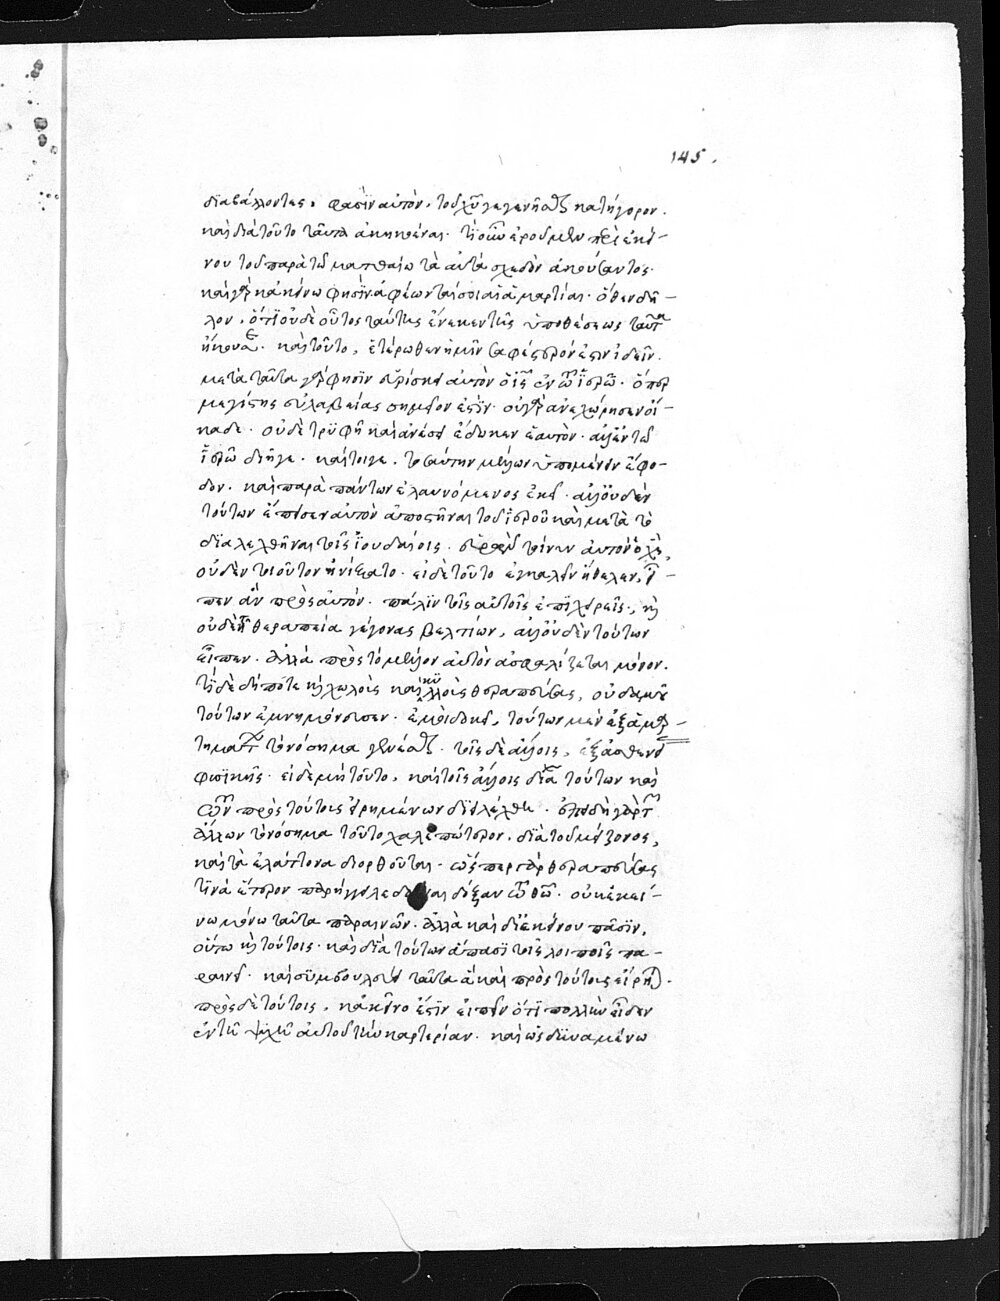 145.
διαβάλλοντες, φασὶν αὐτὸν, τοῦ χῦ γεγενῆσθαι κατήγορον.
καὶ διὰ τοῦτο ταῦτα ἀκηκοέναι. τί οὖν ἐροῦμεν περὶ ἐκεί-
νου τοῦ παρὰ τῶ ματθαίω τὰ αὐτὰ σχεδὸν ἀκούσαντος.
καὶ γὰρ κἀκείνω φησὶν ἀφέωνταί σοι αἱ ἁμαρτίαι. ὅθεν δῆ-
λον, ὅτι οὐδὲ οὗτος ταύτης ἕνεκεν τῆς ὑποθέσεως ταῦτα
ἤκουσε. καὶ τοῦτο, ἑτέρωθεν ἡμῖν σαφέστερόν ἐστιν ἰδεῖν.
μετὰ ταῦτα γάρ φησιν εὑρίσκει αὐτὸν ὁ ις ἐν τῶ ἱερῶ. ὅπερ
μεγίστης εὐλαβείας σημεῖον ἐστὶν. οὐ γὰρ ἀνεχώρησεν οἴ-
καδε. οὐδὲ τρυφῆ καὶ ἀνέσει ἔδωκεν ἑαυτὸν. ἀλλ' ἐν τῶ
ἱερῶ διῆγε. καίτοιγε, τοσαύτην μέλλων ὑπομένειν ἔφο-
δον. καὶ παρὰ πάντων ἐλαυνόμενος ἐκεῖ. ἀλλ' οὐδὲν
τούτων ἔπεισεν αὐτὸν ἀποστῆναι τοῦ ἱεροῦ καὶ μετὰ τὸ
διαλεχθῆναι τοῖς ἰουδαίοις. εὑρὼν τοίνυν αὐτὸν ὁ χς,
οὐδὲν τοιοῦτον ἠνίξατο. εἰ δὲ τοῦτο ἐγκαλεῖν ἤθελεν, εἶ-
πεν ἂν πρὸς αὐτὸν. πάλιν τοῖς αὐτοῖς ἐπιχειρεῖς, καὶ
οὐδὲν τῆ θεραπεία γέγονας βελτίων, ἀλλ' οὐδὲν τούτων
εἶπεν. ἀλλὰ πρὸς τὸ μέλλον αὐτὸν ἀσφαλίζεται μόνον.
τί δὲ δήποτε καὶ χωλοὺς καὶ κυλλοὺς θεραπεύσας, οὐδαμοῦ
τούτων ἐμνημόνευσεν. ἐμοὶ δοκεῖ, τούτων μὲν ἐξ ἁμαρ-
τημάτων τὸ νόσημα γενέσθαι. τοῖς δὲ ἄλλοις, ἐξ ἀσθενεί
φυσικῆς. εἰ δὲ μὴ τοῦτο, καὶ τοῖς ἄλλοις διὰ τούτων καὶ
τῶν πρὸς τούτοις εἰρημένων διείλεκται. ἐπειδὴ γὰρ τῶν
ἄλλων τὸ νόσημα τοῦτο χαλεπώτερον, διὰ τοῦ μείζονος,
καὶ τὰ ἐλάττονα διορθοῦται. ὥσπερ γὰρ θεραπεύσας
τινὰ ἕτερον παρήγγειλε δοῦναι δόξαν τῶ θῶ. οὐκ ἐκεί-
νω μόνω ταῦτα παραινῶν. ἀλλὰ καὶ δι' ἐκείνου πᾶσιν,
οὕτω καὶ τούτοις. καὶ διὰ τούτων ἅπασι τοῖς λοιποῖς πα-
ραινεῖ. καὶ συμβουλεύει ταῦτα ἃ καὶ πρὸς τούτοις εἴρηται.
πρὸς δὲ τούτοις, κἀκεῖνο ἐστὶν εἰπεῖν ὅτι πολλὴν εἶδεν
ἐν τῆ ψυχῆ αὐτοῦ τὴν καρτερίαν. καὶ ὡς δυναμένω